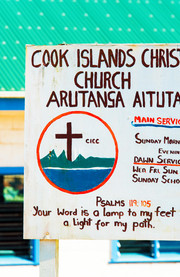 COOK ISLANDS CHRIST
CHURCH
ARUTANGA AITUTA
MAIN SERVIC
CICC
SUNDAY MORN
EVENIN
DAWN SERVIC
WED FRI SUN
SUNDAY SCHOO
PSALMS 119:105
Your Word is a lamp to my feet
a Light for my path.